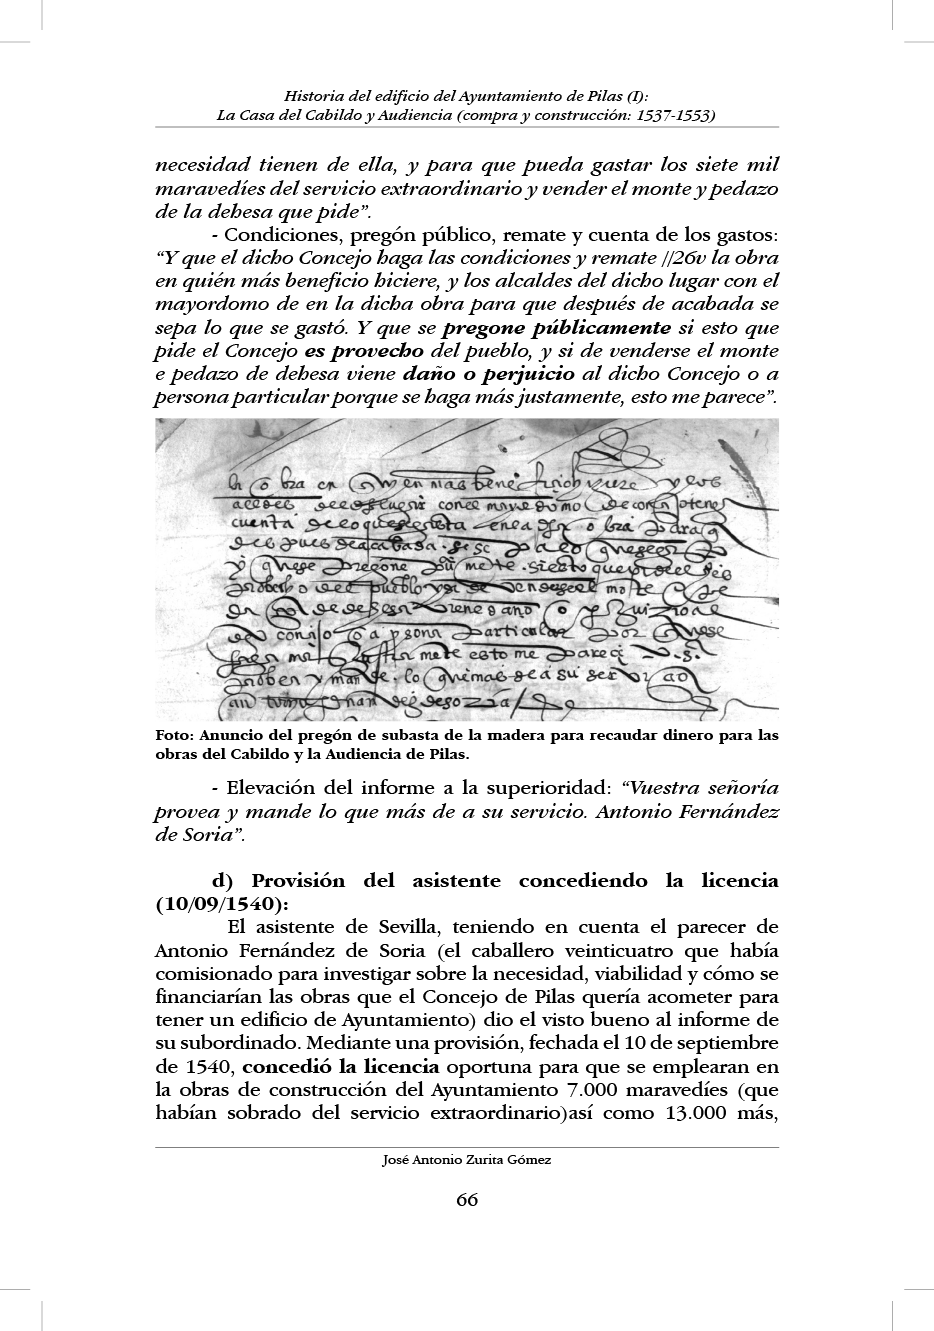 Historia del edificio del Ayuntamiento de Pilas (I):
La Casa del Cabildo y Audiencia (compra y construcción: 1537-1553)
necesidad tienen de ella, y para que pueda gastar los siete mil
maravedíes del servicio extraordinario y vender el monte y pedazo
de la dehesa que pide”.
- Condiciones, pregón público, remate y cuenta de los gastos:
“Y que el dicho Concejo haga las condiciones y remate //26v la obra
en quién más beneficio hiciere, y los alcaldes del dicho lugar con el
mayordomo de en la dicha obra para que después de acabada se
sepa lo que se gastó. Y que se pregone públicamente si esto que
pide el Concejo es provecho del pueblo, y si de venderse el monte
e pedazo de dehesa viene daño o perjuicio al dicho Concejo o a
persona particular porque se haga más justamente, esto me parece”.
la obra en quien mas benefi
cuenta obra para q
y que se pregone
particular por
mete esto me
y mande lo que mas de a su
Foto: Anuncio del pregón de subasta de la madera para recaudar dinero para las
obras del Cabildo y la Audiencia de Pilas.
- Elevación del informe a la superioridad: “Vuestra señoría
provea y mande lo que más de a su servicio. Antonio Fernández
de Soria”.
d) Provisión del asistente concediendo la licencia
(10/09/1540):
El asistente de Sevilla, teniendo en cuenta el parecer de
Antonio Fernández de Soria (el caballero veinticuatro que había
comisionado para investigar sobre la necesidad, viabilidad y cómo se
financiarían las obras que el Concejo de Pilas quería acometer para
tener un edificio de Ayuntamiento) dio el visto bueno al informe de
su subordinado. Mediante una provisión, fechada el 10 de septiembre
de 1540, concedió la licencia oportuna para que se emplearan en
la obras de construcción del Ayuntamiento 7.000 maravedíes (que
habían sobrado del servicio extraordinario)así como 13.000 más,
José Antonio Zurita Gómez
66